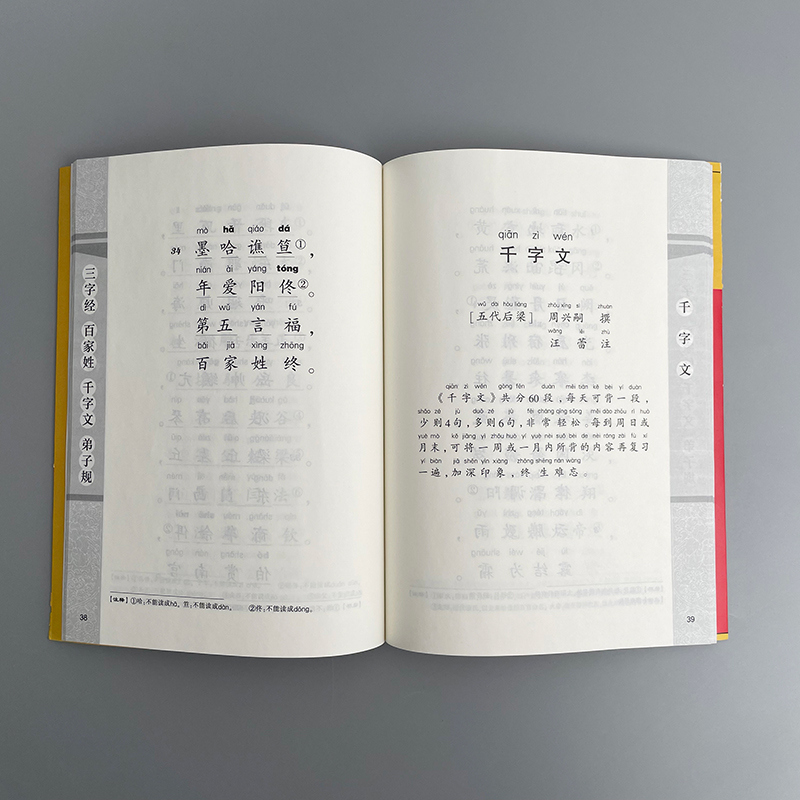 三字经 百家姓 千字文 弟子规
mò hǎ qiáo dá
34 墨哈谯笪①,
nián ài yáng tóng
年爱阳佟②。
dì wǔ yán fú
第五言福,
bǎi jiā xìng zhōng
百家姓终。
【注释】①哈:不能读成hā。笪:不能读成dàn。 ②佟:不能读成dōng。
38
qiān zì wén
千字文
wǔ dài hòu liáng zhōu xīng sì zhuàn
[五代后梁] 周兴嗣 撰
wāng lěi zhù
汪蕾 注
qiān zì wén gòng fēn duàn měi tiān kě bèi yí duàn
《千字文》共分60段,每天可背一段,
shǎo zé jù duō zé jù fēi cháng qīng sōng měi dào zhōu rì huò
少则4句,多则6句,非常轻松。每到周日或
yuè mò kě jiāng yì zhōu huò yí yuè nèi suǒ bèi de nèi róng zài fù xí
月末,可将一周或一月内所背的内容再复习
yí biàn jiā shēn yìn xiàng zhōng shēng nán wàng
一遍,加深印象,终生难忘。
千字文
39